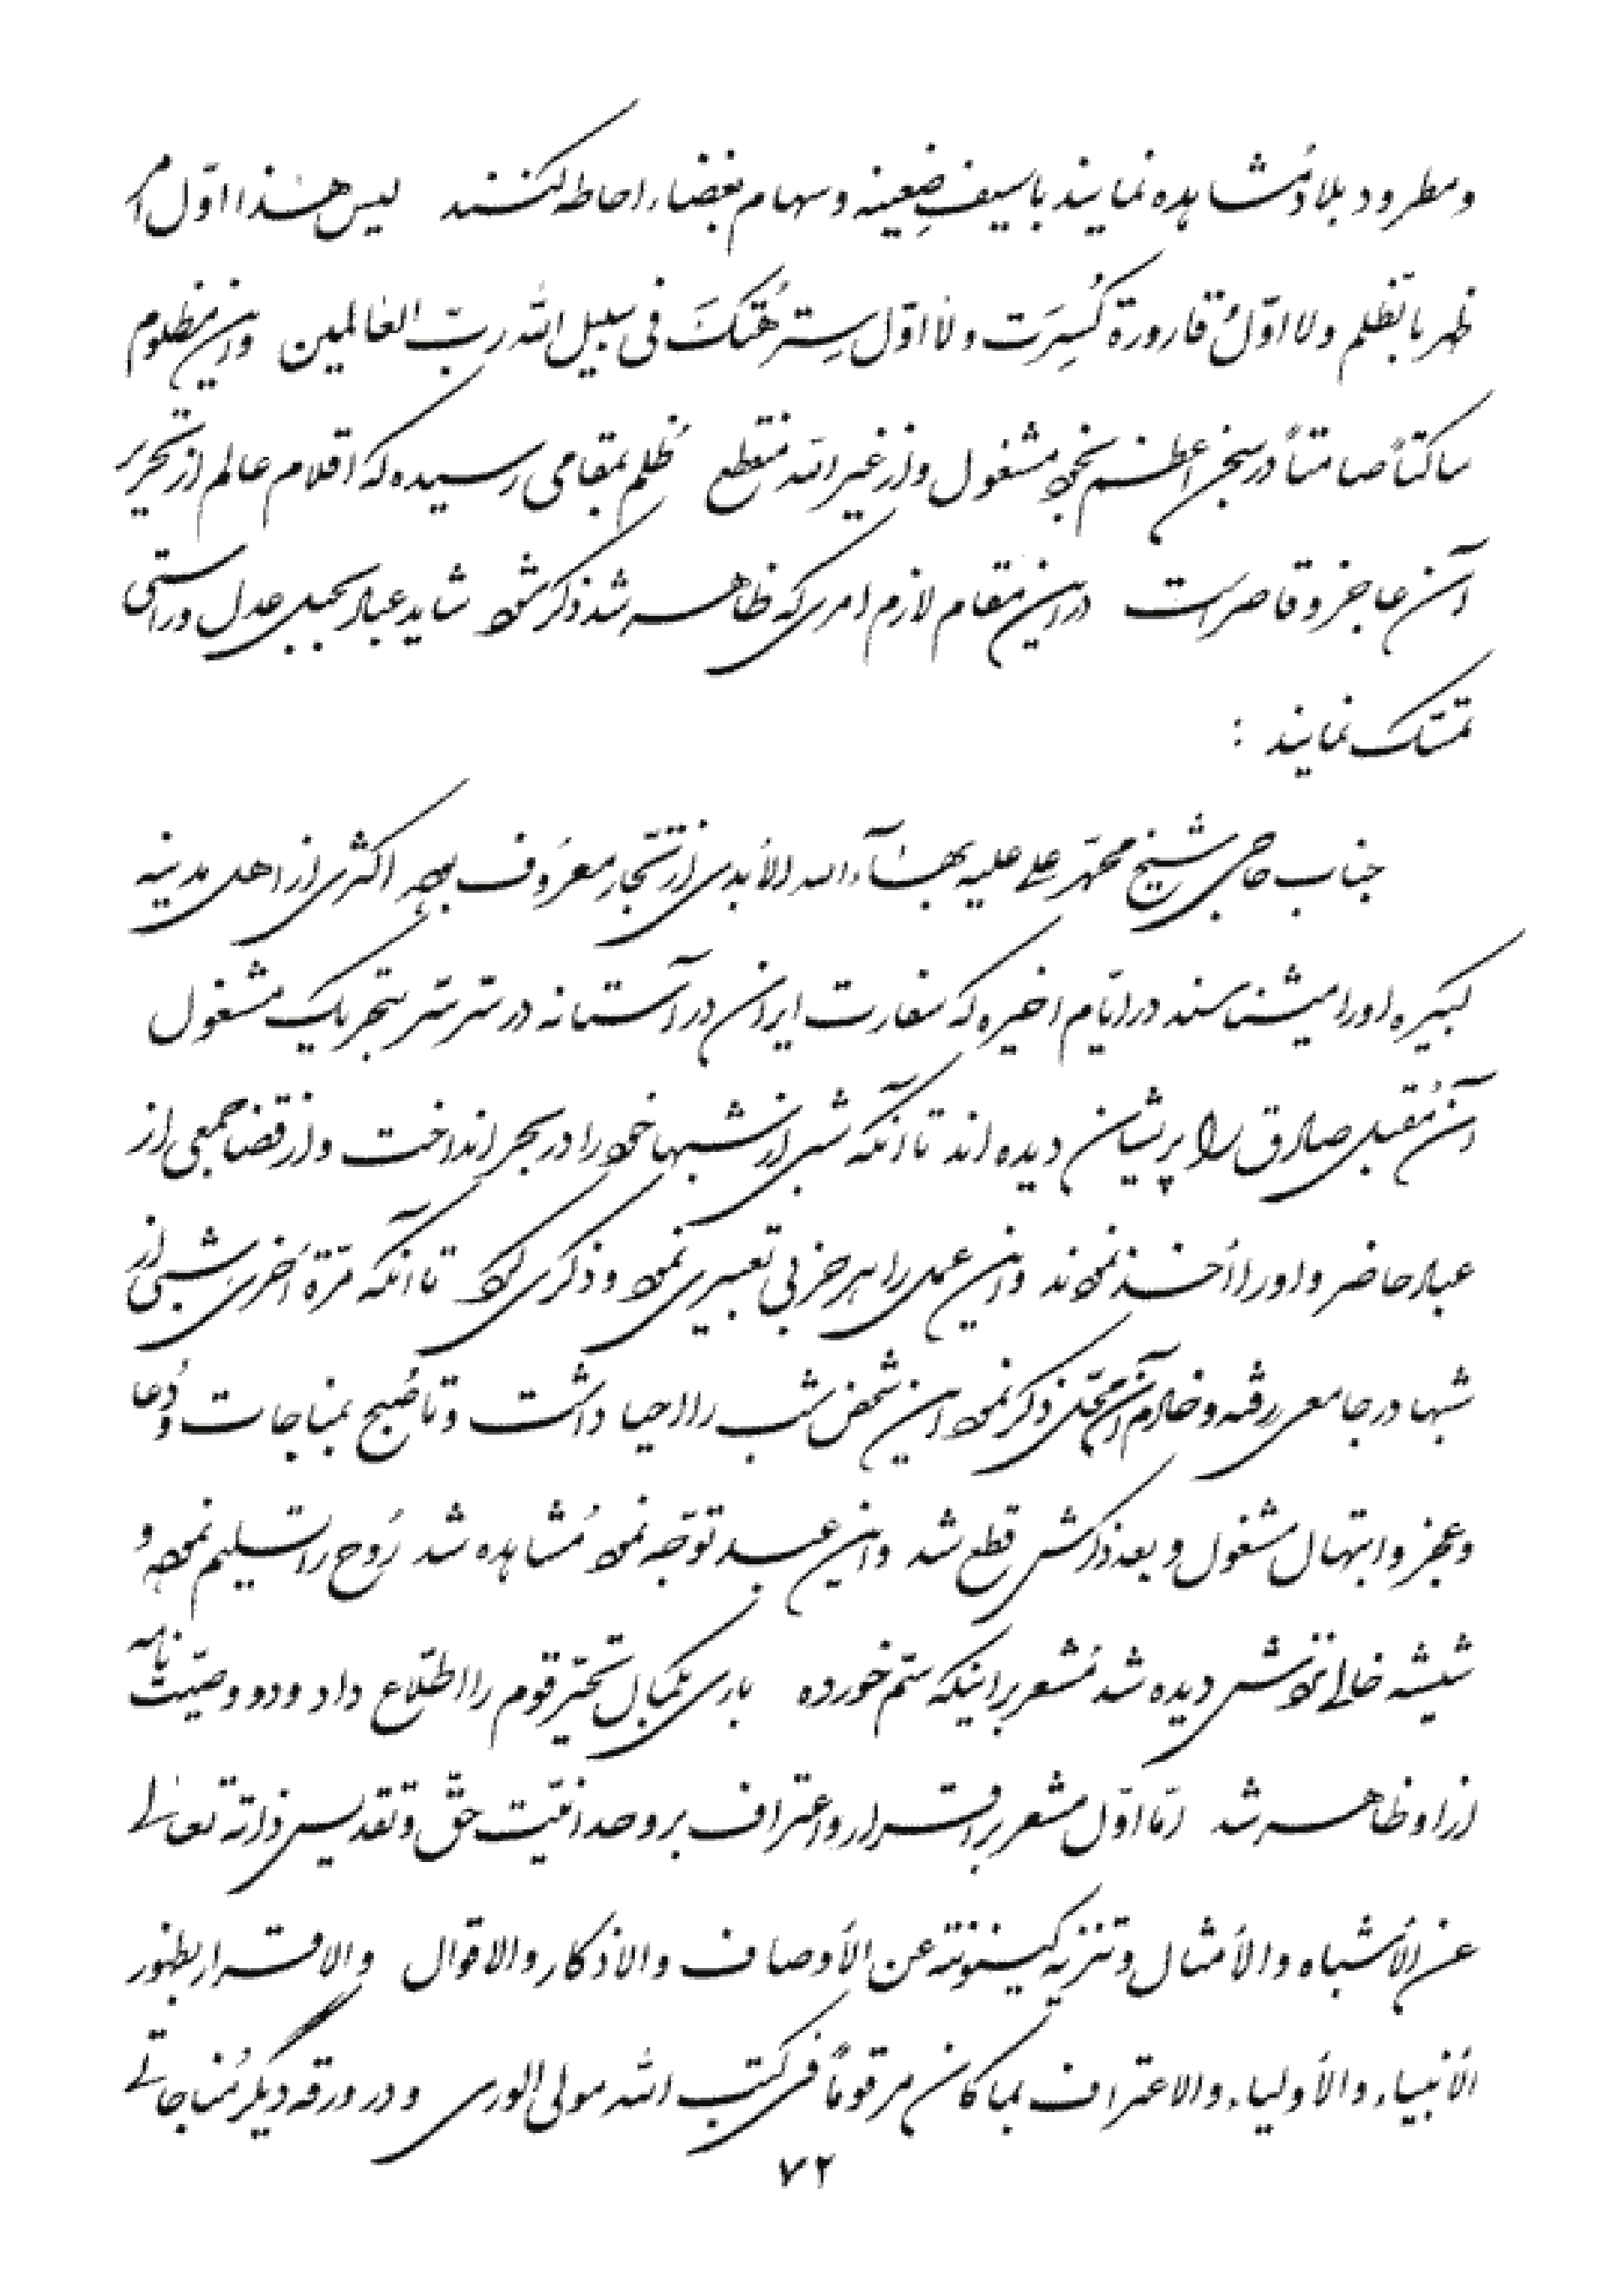 و مطرود بلاد مُشاهده نمایند با سیف ضِغینه و سهام بغضاء احاطه کنند لیس هٰذا اوّل امر
ظهر بالظّلم و لا اوّلُ قارورة کُسِرَت و لا اوّل سِتر هُتکَ فی سبیل الله ربّ العٰالمین و این مظلوم
ساکتاً صامتاً در سجن اعظم بخود مشغول و از غیر الله منقطع ظُلم بمقامی رسیده که اقلام عالم از تحریر
آن عاجز و قاصر است در این مقام لازم امری که ظاهر شد ذکر شود شاید عباد بحبل عدل و راستی
تمسّک نمایند :
جناب حاجی شیخ محمّد علی علیه بهآء الله الأبدی از تجّار معرُوف بوده اکثری از اهل مدینه
کبیره او را میشناسند در ایّام اخیره که سفارت ایران در آستانه در سِرّ سِرّ بتحریک مشغول
آن مُقبل صادق را پریشان دیده اند تا آنکه شبی از شبها خود را در بحر انداخت و از قضا جمعی از
عباد حاضر و او را أخذ نمودند و این عمل را هر حزبی تعبیری نمود و ذکری کرد تا آنکه مرّة اُخری شبی از
شبها در جامعی رفته و خادم آن محلّ ذکر نمود این شخص شب را احیا داشت و تا صُبح بمناجات و دُعا
و عجز و ابتهال مشغول و بعد ذکرش قطع شد و این عبد توجّه نمود مُشاهده شد رُوح را تسلیم نموده و
شیشه خالی نزدش دیده شد مُشعر بر اینکه سَمّ خورده باری بکمال تحیّر قوم را اطّلاع داد و دو وصیّت نامه
از او ظاهر شد امّا اوّل مشعر بر اقرار و اعتراف بر وحدانیّت حقّ و تقدیس ذاته تعالیٰ
عن الأشباه و الأمثال و تنزیه کینونته عن الأوصاف و الاذکار و الاقوال و الاقرار بظهور
الأنبیاء و الأولیاء و الاعتراف بما کان مرقوماً فی کتب الله مولی الوری و در ورقه دیگر مُناجاتی
۷۲